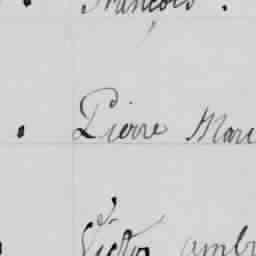 François .
Pierre Marc
Victor ambr